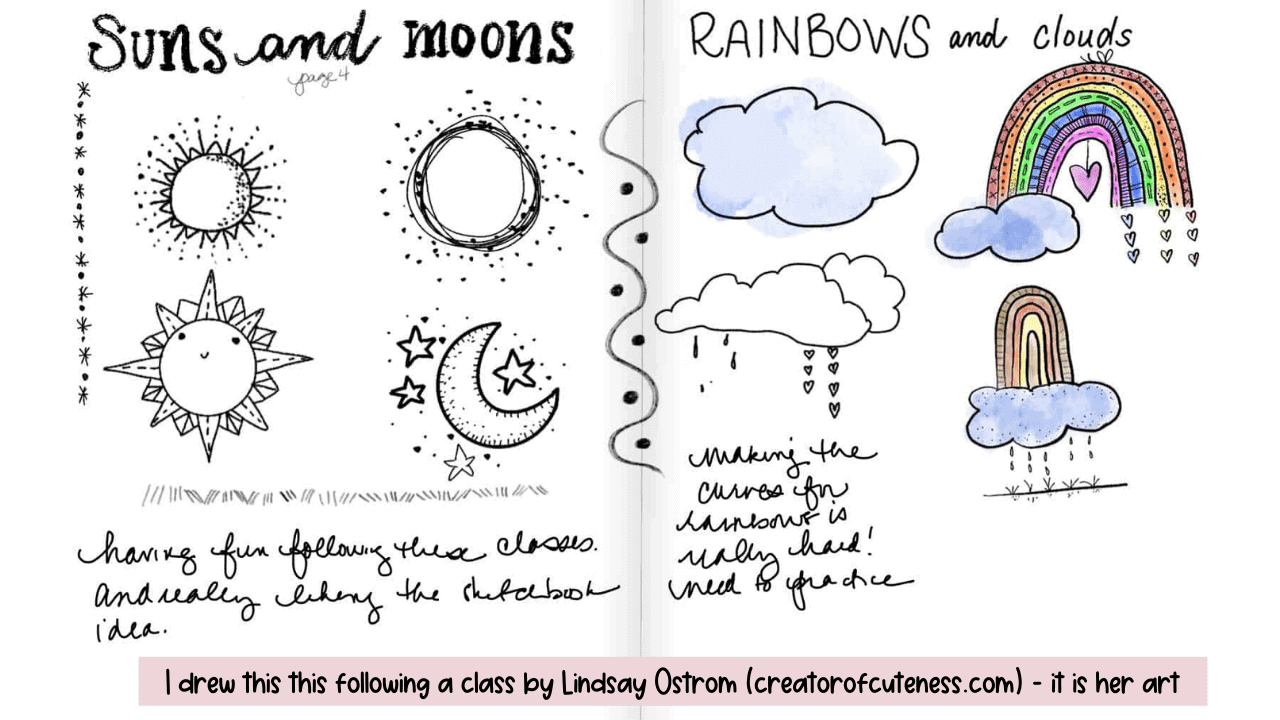 Suns and moons
page 4
having fun following these classes.
And really liking the sketchbook
idea.
RAINBOWS and clouds
making the
curves for
rainbows is
really hard!
need to practice
I drew this this following a class by Lindsay Ostrom (creatorofcuteness.com) - it is her art